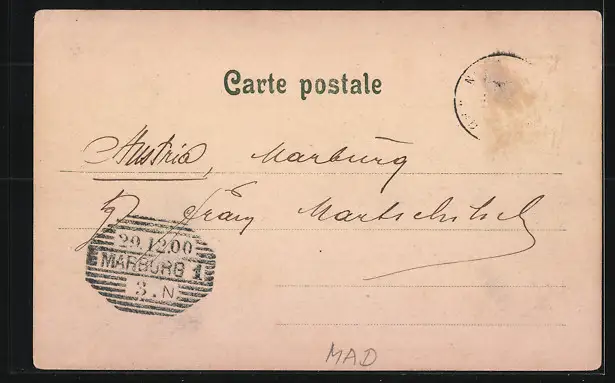 Carte postale
Austria, Marburg
Franz Martschitsch
29.12.00
MARBURG 1
3.N
MAD